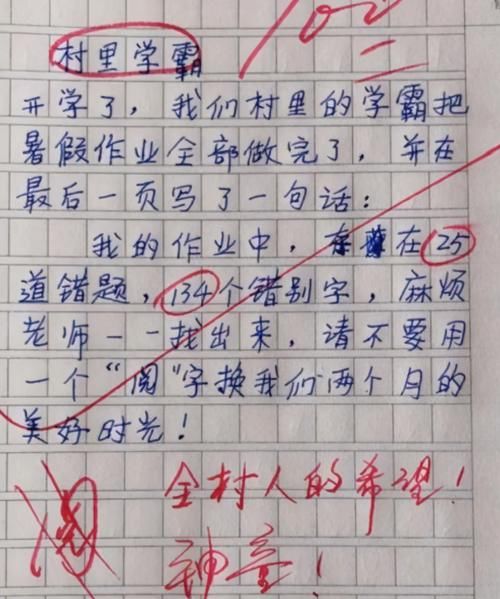 100
村里学霸
开学了，我们村里的学霸把
暑假作业全部做完了，并在
最后一页写了一句话：
我的作业中，存在25
道错题，134个错别字，麻烦
老师一一找出来，请不要用
一个“阅”字换我们两个月的
美好时光！
全村人的希望！
阅
神童！